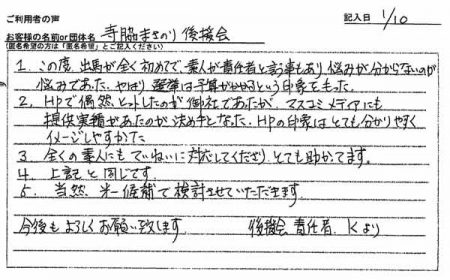 ご利用者の声
記入日 1/10
お客様の名前or団体名 寺脇まさのり後援会
(匿名希望の方は「匿名希望」とご記入ください)
1. この度、出馬が全く初めてで、素人が責任者と言う事もあり悩みが分からないのが
悩みであった。やはり選挙は予算がかかるという印象をもった。
2. HPで偶然ヒットしたのが御社であったが、マスコミメディアにも
提供実績があったのが決め手となった。HPの印象はとても分かりやすく
イメージしやすかた
3. 全くの素人にもていねいに対応してくださり、とても助かてます。
4. 上記と同じです。
5. 当然、第一候補で検討させていただきます。
今後もよろしくお願い致します 後援会 責任者. Kより